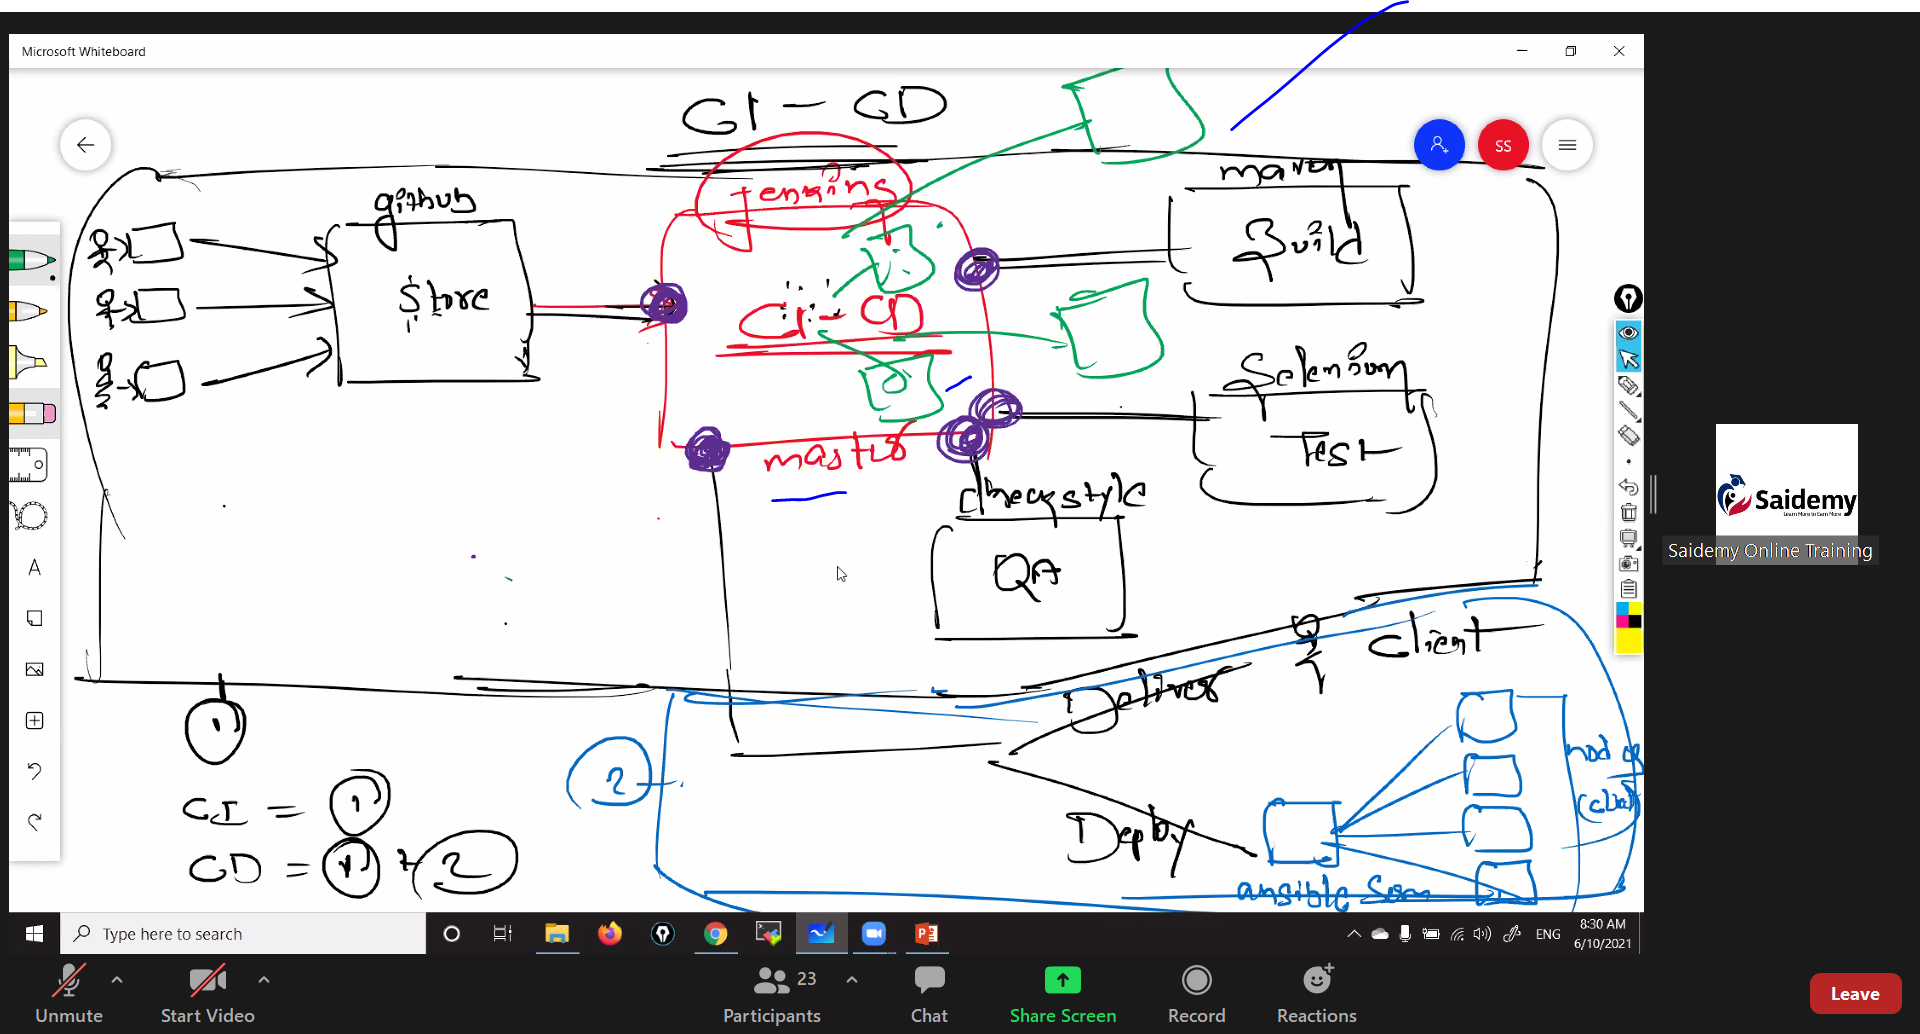 Microsoft Whiteboard
CI - CD
SS
github
Store
Jenkins
CI - CD
master
maven
Build
Selenium
Test
checkstyle
QA
Client
Deliver
Deploy
ansible
1
CI = 1
CD = 1 + 2
2
A
Saidemy
Learn More to Earn More
Saidemy Online Training
Type here to search
ENG
8:30 AM
6/10/2021
Unmute
Start Video
Participants
23
Chat
Share Screen
Record
Reactions
Leave